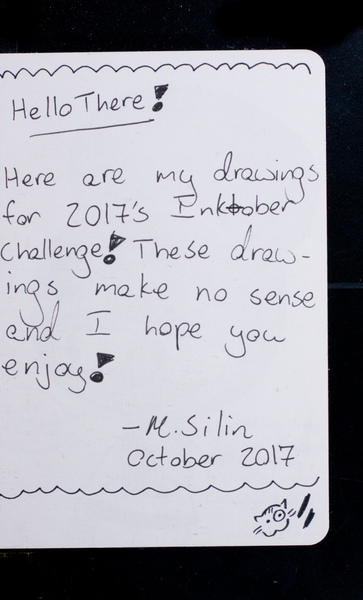 Hello There!
Here are my drawings
for 2017's Inktober
Challenge! These draw-
ings make no sense
and I hope you
enjoy!
-M.Silin
October 2017